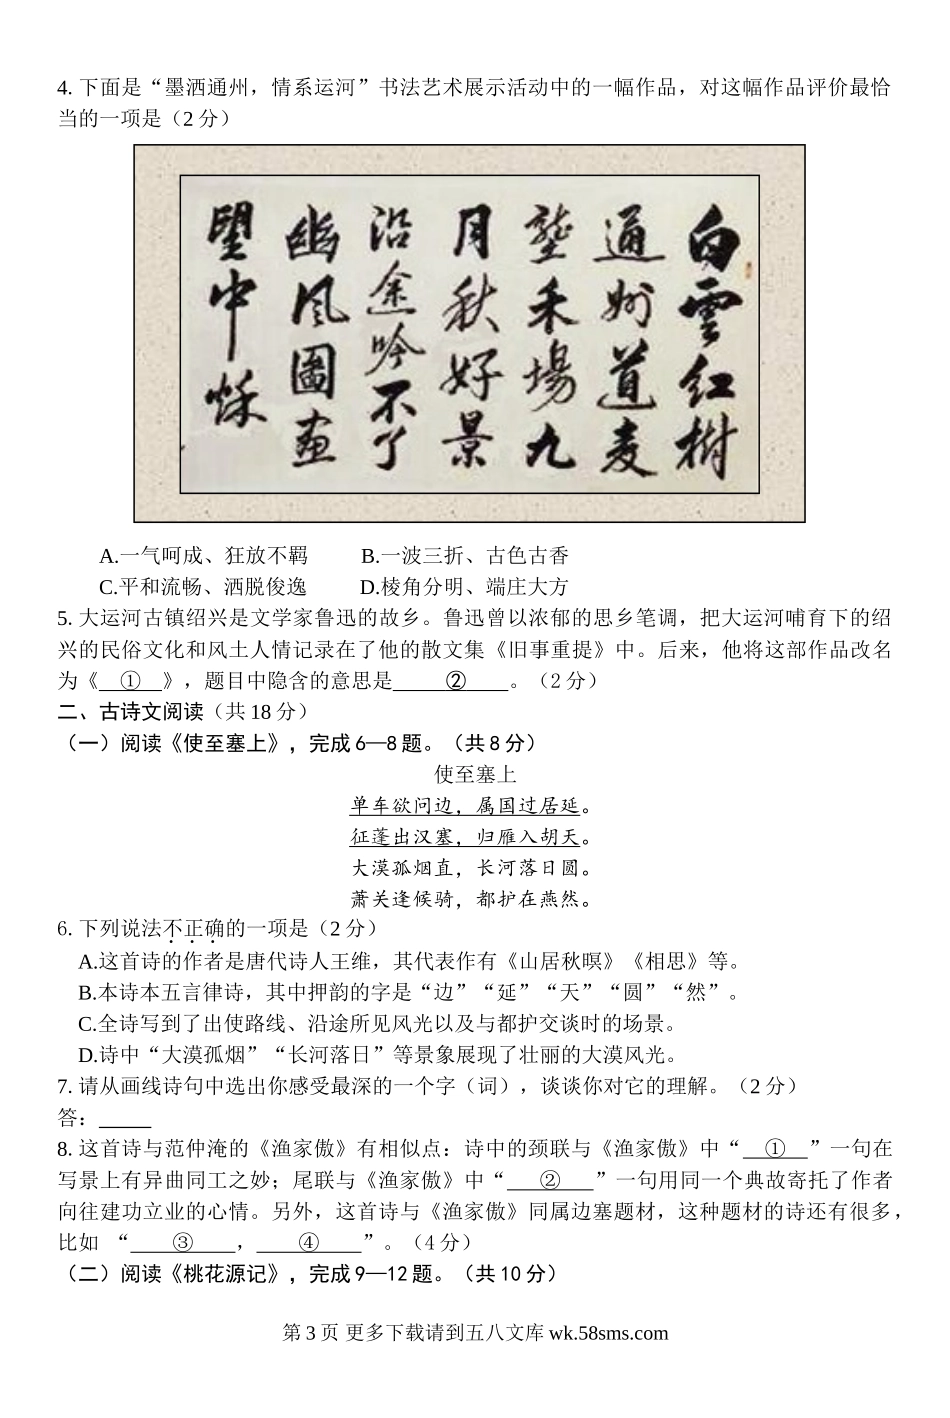 4. 下面是“墨洒通州，情系运河”书法艺术展示活动中的一幅作品，对这幅作品评价最恰
当的一项是（2 分）
白雲红樹
通州道麦
壟禾場九
月秋好景
沿途吟不了
幽风圖画
望中烁
A.一气呵成、狂放不羁 B.一波三折、古色古香
C.平和流畅、洒脱俊逸 D.棱角分明、端庄大方
5. 大运河古镇绍兴是文学家鲁迅的故乡。鲁迅曾以浓郁的思乡笔调，把大运河哺育下的绍
兴的民俗文化和风土人情记录在了他的散文集《旧事重提》中。后来，他将这部作品改名
为《 ① 》，题目中隐含的意思是 ② 。（2 分）
二、古诗文阅读（共 18 分）
（一）阅读《使至塞上》，完成 6—8 题。（共 8 分）
使至塞上
单车欲问边，属国过居延。
征蓬出汉塞，归雁入胡天。
大漠孤烟直，长河落日圆。
萧关逢候骑，都护在燕然。
6. 下列说法不正确的一项是（2 分）
A.这首诗的作者是唐代诗人王维，其代表作有《山居秋暝》《相思》等。
B.本诗本五言律诗，其中押韵的字是“边”“延”“天”“圆”“然”。
C.全诗写到了出使路线、沿途所见风光以及与都护交谈时的场景。
D.诗中“大漠孤烟”“长河落日”等景象展现了壮丽的大漠风光。
7. 请从画线诗句中选出你感受最深的一个字（词），谈谈你对它的理解。（2 分）
答：_____
8. 这首诗与范仲淹的《渔家傲》有相似点：诗中的颈联与《渔家傲》中“ ① ”一句在
写景上有异曲同工之妙；尾联与《渔家傲》中“ ② ”一句用同一个典故寄托了作者
向往建功立业的心情。另外，这首诗与《渔家傲》同属边塞题材，这种题材的诗还有很多，
比如 “ ③ ， ④ ”。（4 分）
（二）阅读《桃花源记》，完成 9—12 题。（共 10 分）
第 3 页 更多下载请到五八文库 wk.58sms.com